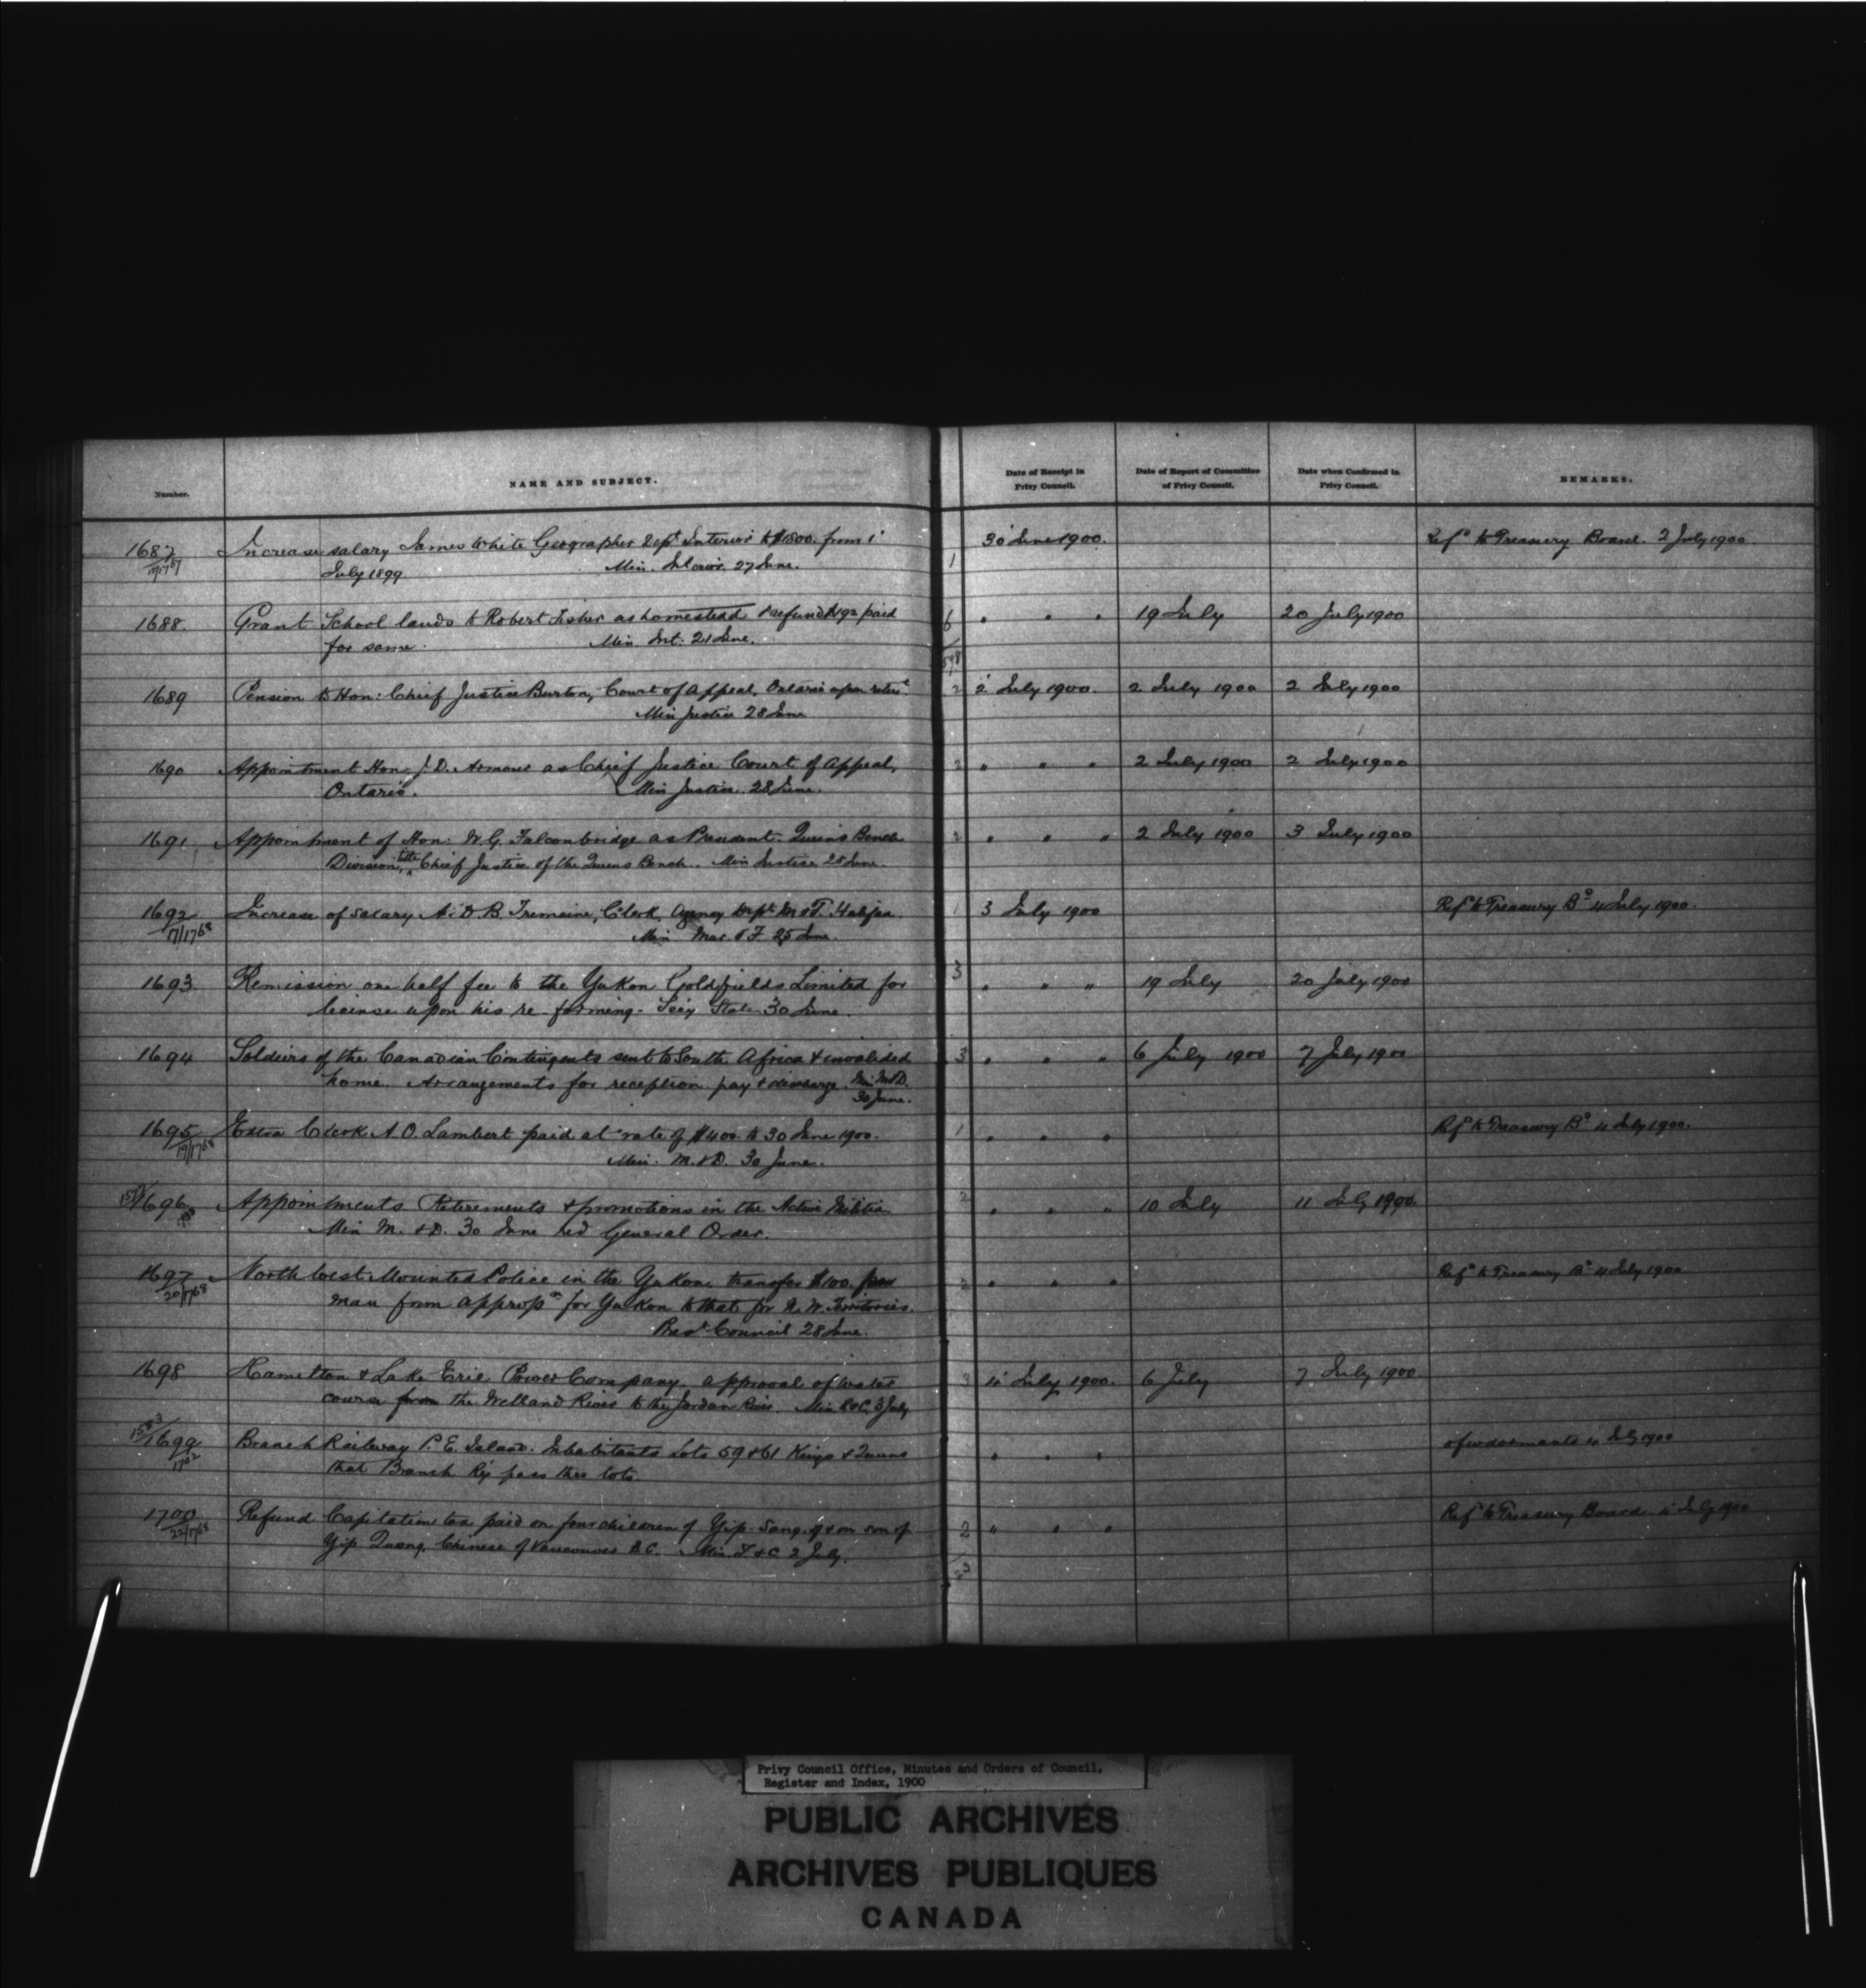 Number.
NAME AND SUBJECT.
Date of Receipt in
Privy Council.
Date of Report of Committee
of Privy Council.
Date when Confirmed in
Privy Council.
REMARKS.
1687 Increase salary James White Geographer Dept Interior to $1800. from 1' 1 30' June 1900. Refd to Treasury Board. 2 July 1900
July 1899. Min. Interior 27 June.
1688. Grant School lands to Robert Fisher as homestead & refund $192 paid 6 " " " 19 July 20 July 1900
for same. Min. Int: 21 June.
1689 Pension to Hon: Chief Justice Burton, Court of Appeal, Ontario upon 2 2' July 1900. 2 July 1900 2 July 1900
Min Justice 28 June
1690 Appointment Hon. J. D. Armour as Chief Justice Court of Appeal, 2 " " " 2 July 1900 2 July 1900
Ontario. Min Justice. 28 June.
1691 Appointment of Hon: W. G. Falconbridge as President. Queens Bench 2 " " " 2 July 1900 3 July 1900
Division, title Chief Justice of the Queens Bench. Min Justice 28 June.
1692 Increase of salary A. D. B. Tremaine, Clerk, Agency Dept M & F. Halifax. 1 3 July 1900 Refd to Treasury Bd 4 July 1900.
17/1768 Min Mar. & F. 25 June.
1693 Remission one half fee to the Yukon Goldfields Limited for 3 " " " 19 July 20 July 1900
license upon his re-forming. Secy State 30 June.
1694 Soldiers of the Canadian Contingents sent to South Africa & invalided 3 " " " 6 July 1900 7 July 1900
home. Arrangements for reception pay & discharge. Min M&D.
30 June.
1695 Extra Clerk A. O. Lambert paid at rate of $400. to 30 June 1900. 1 " " " Refd to Treasury Bd 4 July 1900.
19/1768 Min. M. & D. 30 June.
1696 Appointments Retirements & promotions in the Active Militia 2 " " " 10 July 11 July 1900
Min M. & D. 30 June General Order.
1697 North West Mounted Police in the Yukon, transfer $100. per 2 " " " Refd to Treasury Bd 4 July 1900
20/1768 man from appropn for Yukon to that for N. W. Territories.
Presdt Council 28 June.
1698 Hamilton & Lake Erie Power Company. approval of water 3 4' July 1900. 6 July 7 July 1900
course from the Welland River to the Jordan River. Min R&C. 3 July
1699 Branch Railway P. E. Island. Inhabitants Lots 59 & 61 Kings & Queens " " " 4 July 1900
that Branch Ry pass thro lots.
1700 Refund Capitation tax paid on four children of Yip Sang & on son of 2 " " " Refd to Treasury Board 4' July 1900
22/1768 Yip Quong, Chinese of Vancouver B.C. Min T & C 2 July.
23
Privy Council Office, Minutes and Orders of Council,
Register and Index, 1900
PUBLIC ARCHIVES
ARCHIVES PUBLIQUES
CANADA